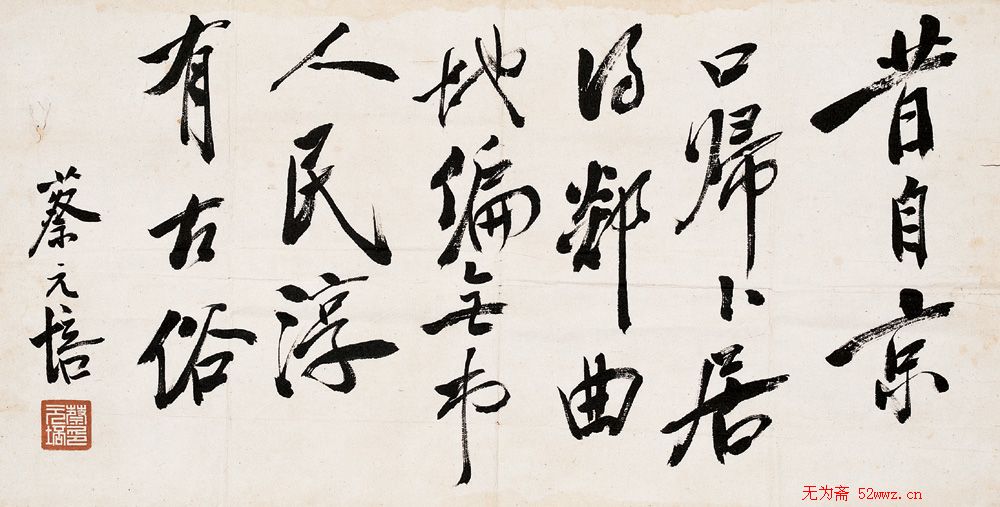 昔自京
口歸卜居
得鄰曲
地偏無市
人民淳
有古俗
蔡元培
蔡印元培
无为斋 52wwz.cn